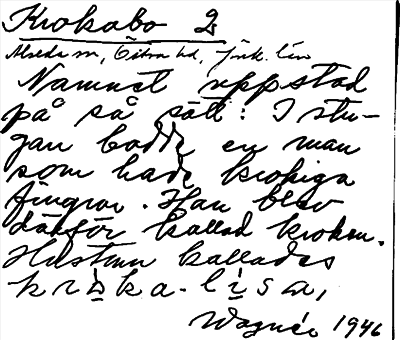 Krokabo 2
Alseda sn, Östra hd, Jönk. län
Namnet uppstod
på så sätt: I stu-
gan bodde en man
som hade krokiga
fingrar. Han blev
därför kallad kroken.
Hustrun kallades
kroka-lisa,
Wagnér 1946